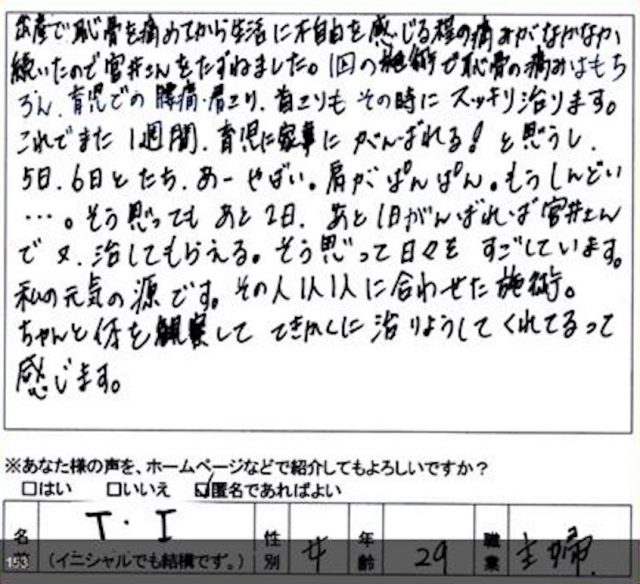 出産で恥骨を痛めてから生活に不自由を感じる程の痛みがなかなか
続いたので宮井さんをたずねました。1回の施術で恥骨の痛みはもち
ろん、育児での腰痛・肩こり、首こりもその時にスッキリ治ります。
これでまた1週間、育児に家事にがんばれる!と思うし、
5日、6日とたち、あーやばい。肩がぱんぱん。もうしんどい
…。そう思ってもあと2日、あと1日がんばれば宮井さん
で又、治してもらえる。そう思って日々をすごしています。
私の元気の源です。その人1人1人に合わせた施術。
ちゃんと体を観察しててきかくに治りようしてくれてるって
感じます。
※あなた様の声を、ホームページなどで紹介してもよろしいですか?
□はい □いいえ ☑匿名であればよい
名前 T・I (イニシャルでも結構です。) 性別 女 年齢 29 職業 主婦
153